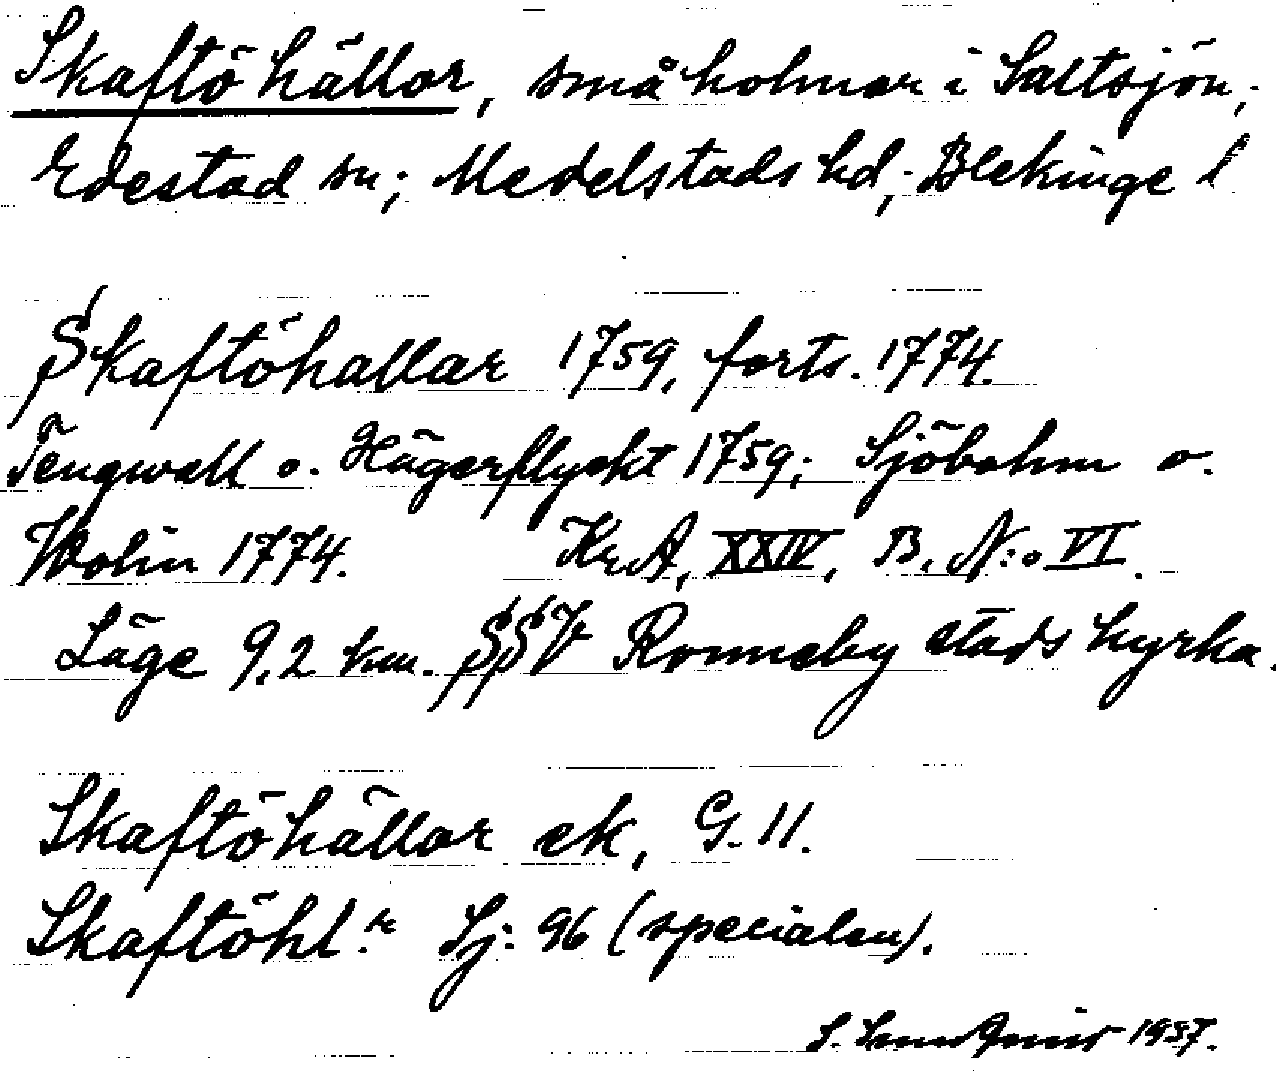 Skaftö hällor, små holmar i Saltsjön,
Edestad sn; Medelstads hd, Blekinge l
Skaftöhallar 1759, forts. 1774.
Tengwall o. Hägerflyckt 1759; Sjöbohm o.
Wolin 1774. KrA, XXIV, B. N:o VI.
Läge 9,2 km. SSV Ronneby stads kyrka.
Skaftöhällor ek, G. 11.
Skaftöhl.r Sj: 96 (specialen).
S. 1937.